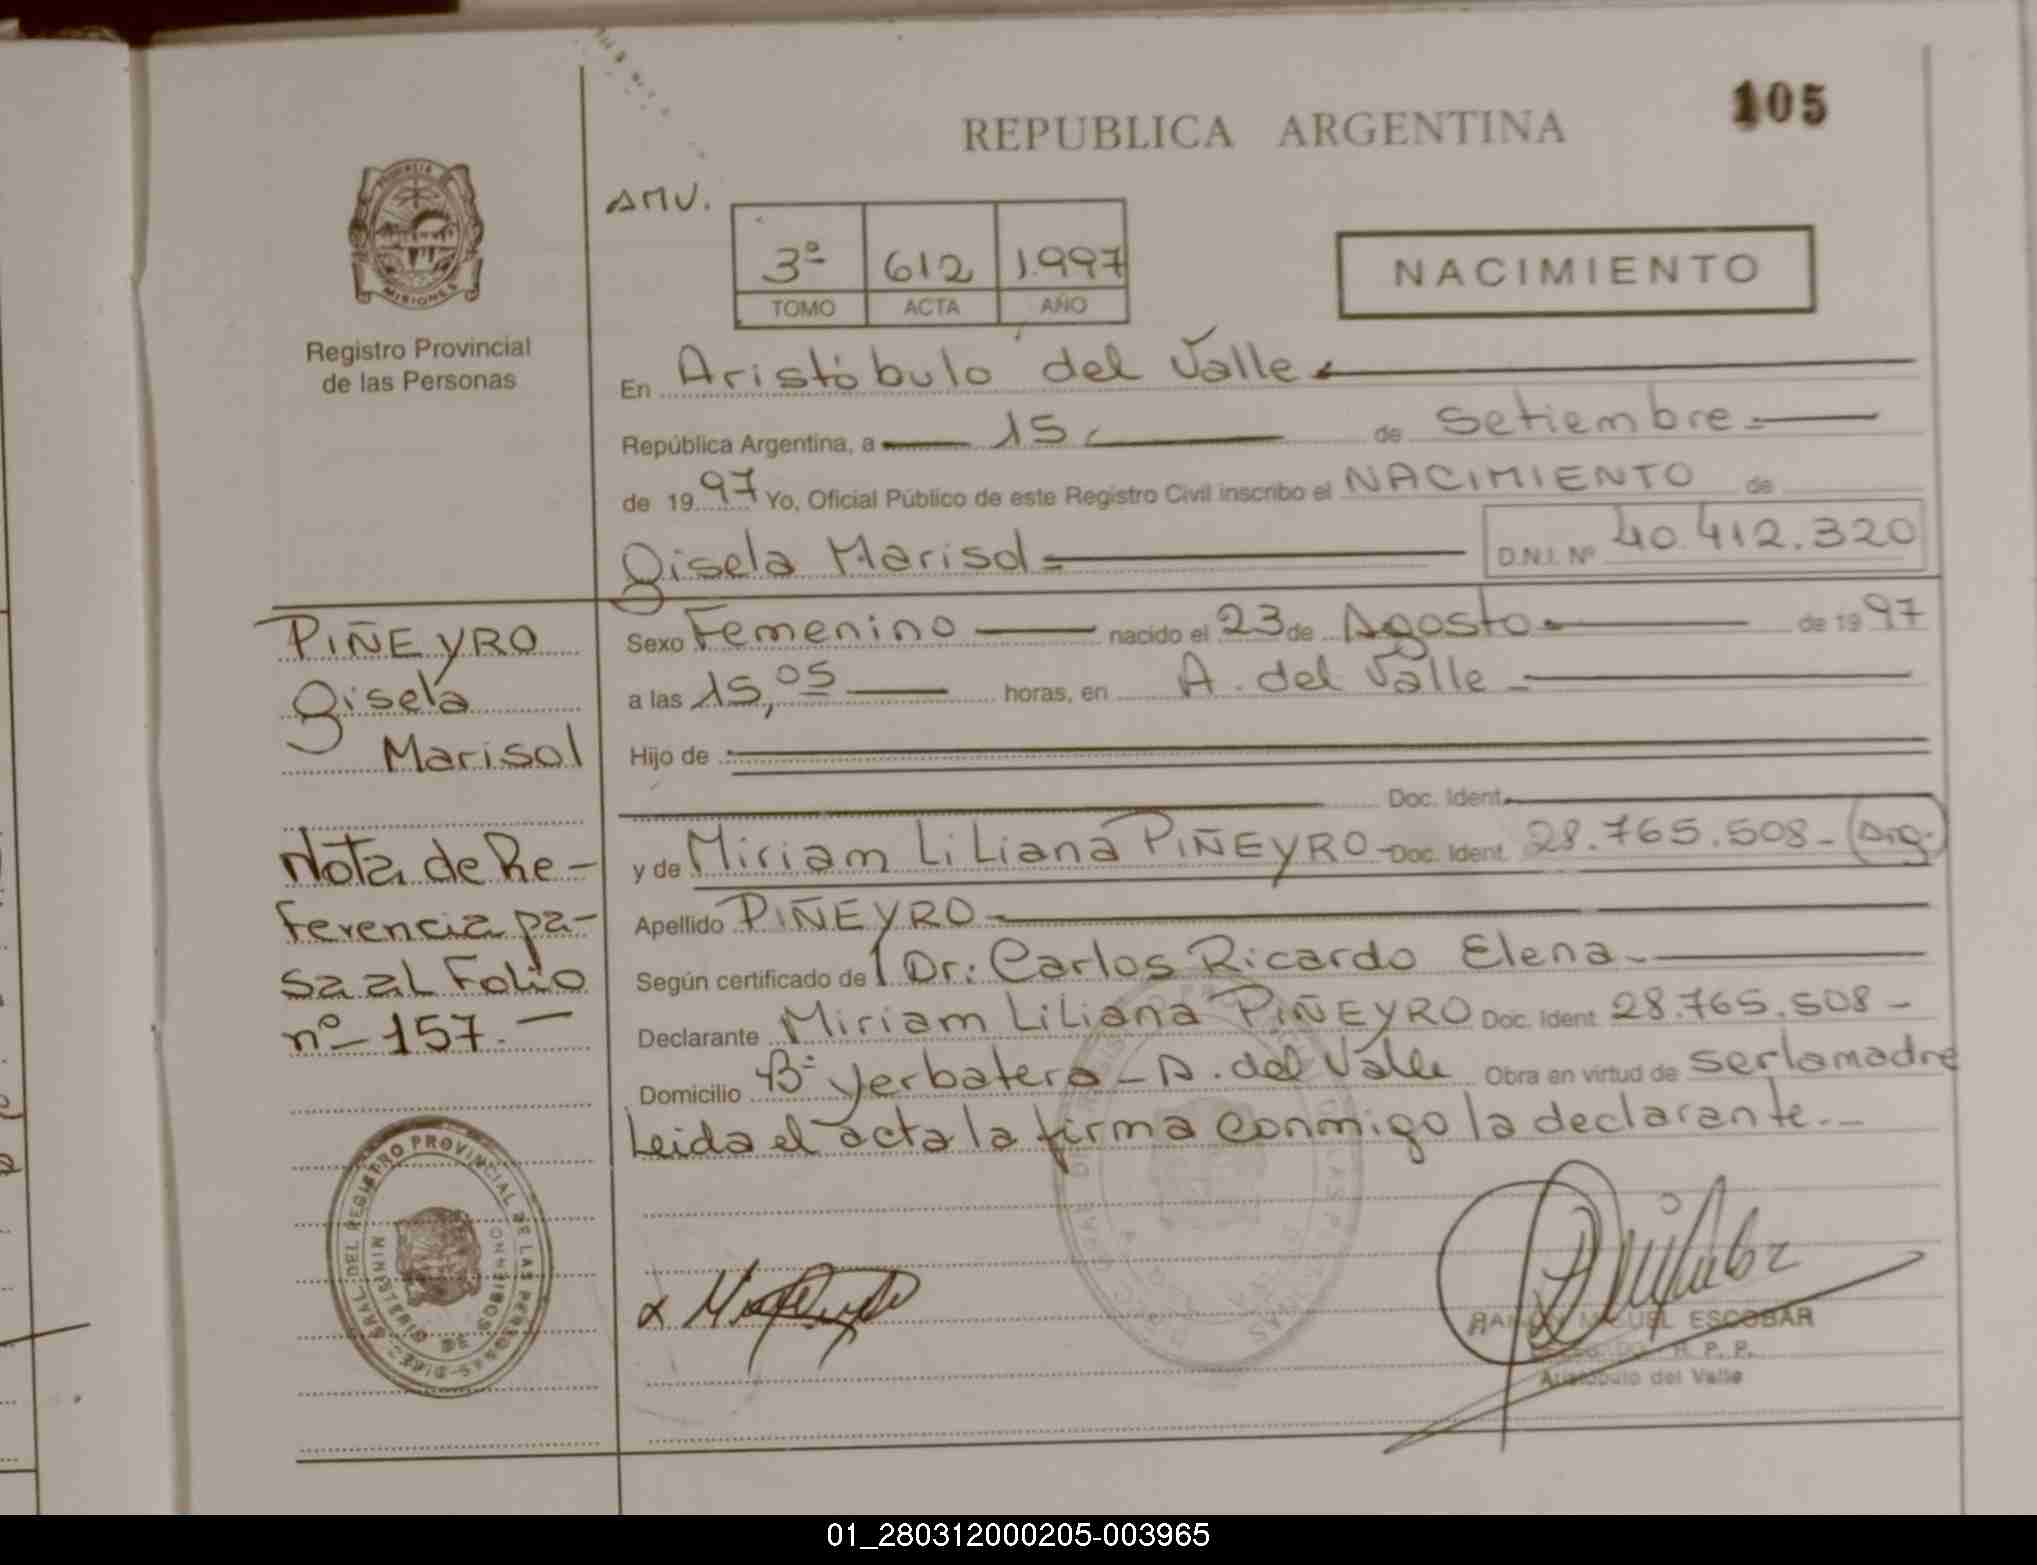 REPUBLICA ARGENTINA
105
AMV.
3º 612 1.997
TOMO ACTA AÑO
NACIMIENTO
MISIONES
Registro Provincial
de las Personas
En Aristóbulo del Valle
República Argentina, a 15 de Setiembre
de 1997 Yo, Oficial Público de este Registro Civil inscribo el NACIMIENTO de
Gisela Marisol D.N.I. Nº 40.412.320
Sexo Femenino nacido el 23 de Agosto de 1997
a las 15,05 horas, en A. del Valle
Hijo de
Doc. Ident.
y de Miriam Liliana PIÑEYRO Doc. Ident. 28.765.508 - (Arg.)
Apellido PIÑEYRO
Según certificado de Dr: Carlos Ricardo Elena
Declarante Miriam Liliana PIÑEYRO Doc. Ident. 28.765.508 -
Domicilio Bº Yerbatero - A. del Valle Obra en virtud de ser la madre
Leida el acta la firma conmigo la declarante.-
PIÑEYRO
Gisela
Marisol
Nota de Re-
ferencia pa-
sa al Folio
nº 157. -
RAMON MIGUEL ESCOBAR
R. P. P.
Aristóbulo del Valle
REGISTRO PROVINCIAL DE LAS PERSONAS
MINISTERIO DE GOBIERNO
01_280312000205-003965